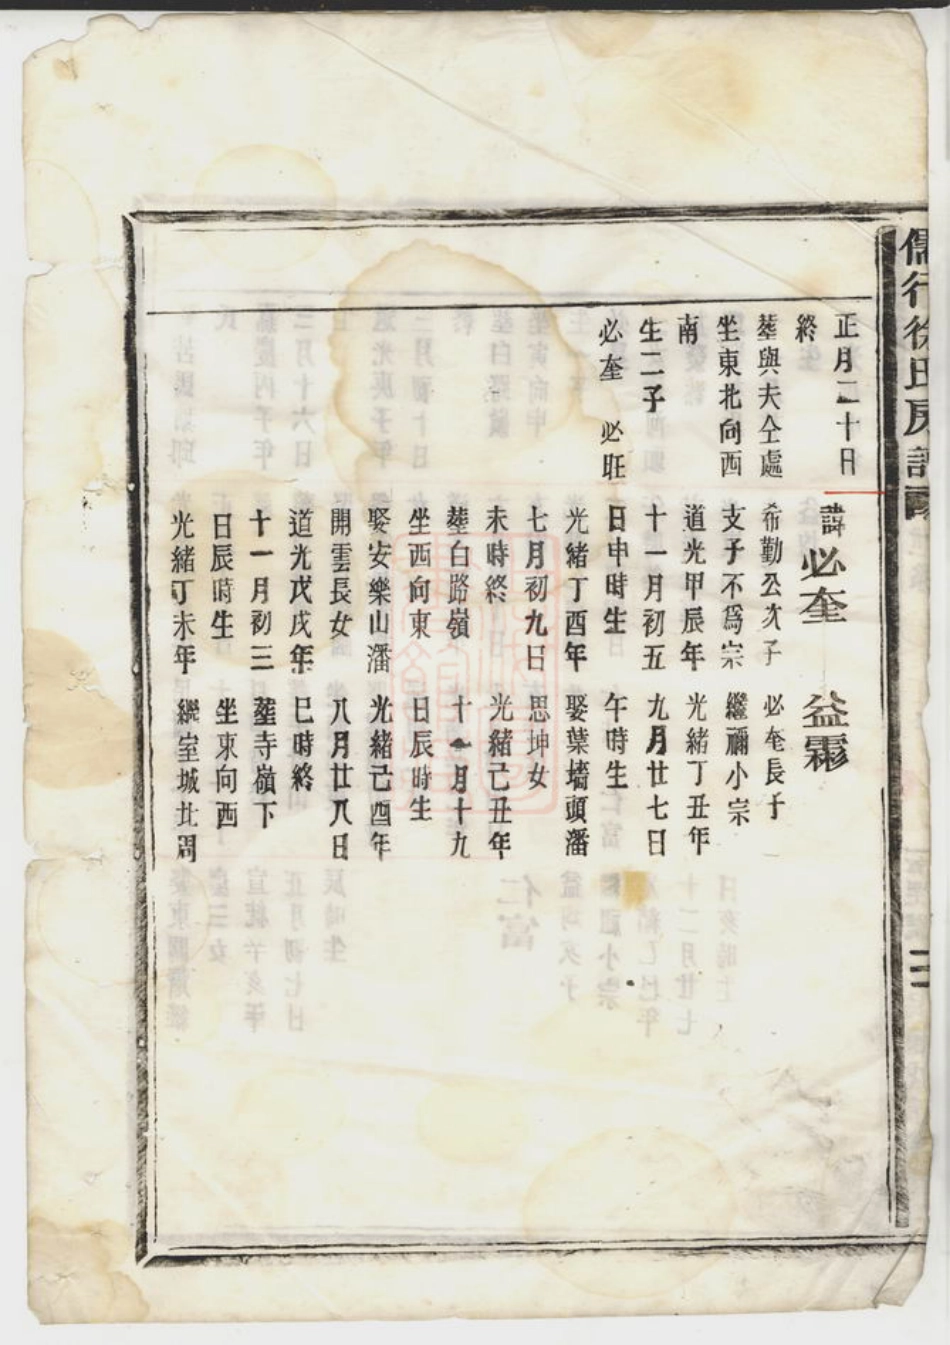 儒行徐氏房譜
正月二十日
終
塟與夫仝處
坐東北向西
南
生二子
必奎 必旺
諱必奎
希勤公次子
支子不爲宗
道光甲辰年
十一月初五
日申時生
光緒丁酉年
七月初九日
未時終
塟白路嶺
坐西向東
娶安樂山潘
開雲長女
道光戊戌年
十一月初三
日辰時生
光緒丁未年
益霖
必奎長子
繼禰小宗
光緒丁丑年
九月廿七日
午時生
娶葉墻頭潘
思坤女
光緒己丑年
十一月十九
日辰時生
光緒己酉年
八月廿八日
巳時終
塟寺嶺下
坐東向西
繼室城北周